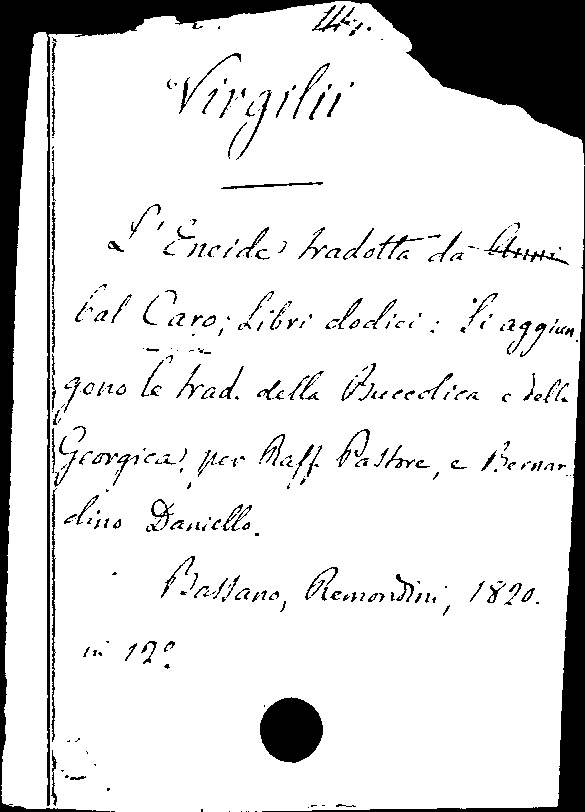 Virgilii
L'Eneide tradotta da Anni
bal Caro; Libri dodici: Si aggiun
gono le trad. della Buccolica e della
Georgica, per Raff. Pastore, e Bernar
dino Daniello.
Bassano, Remondini, 1820.
in 12º